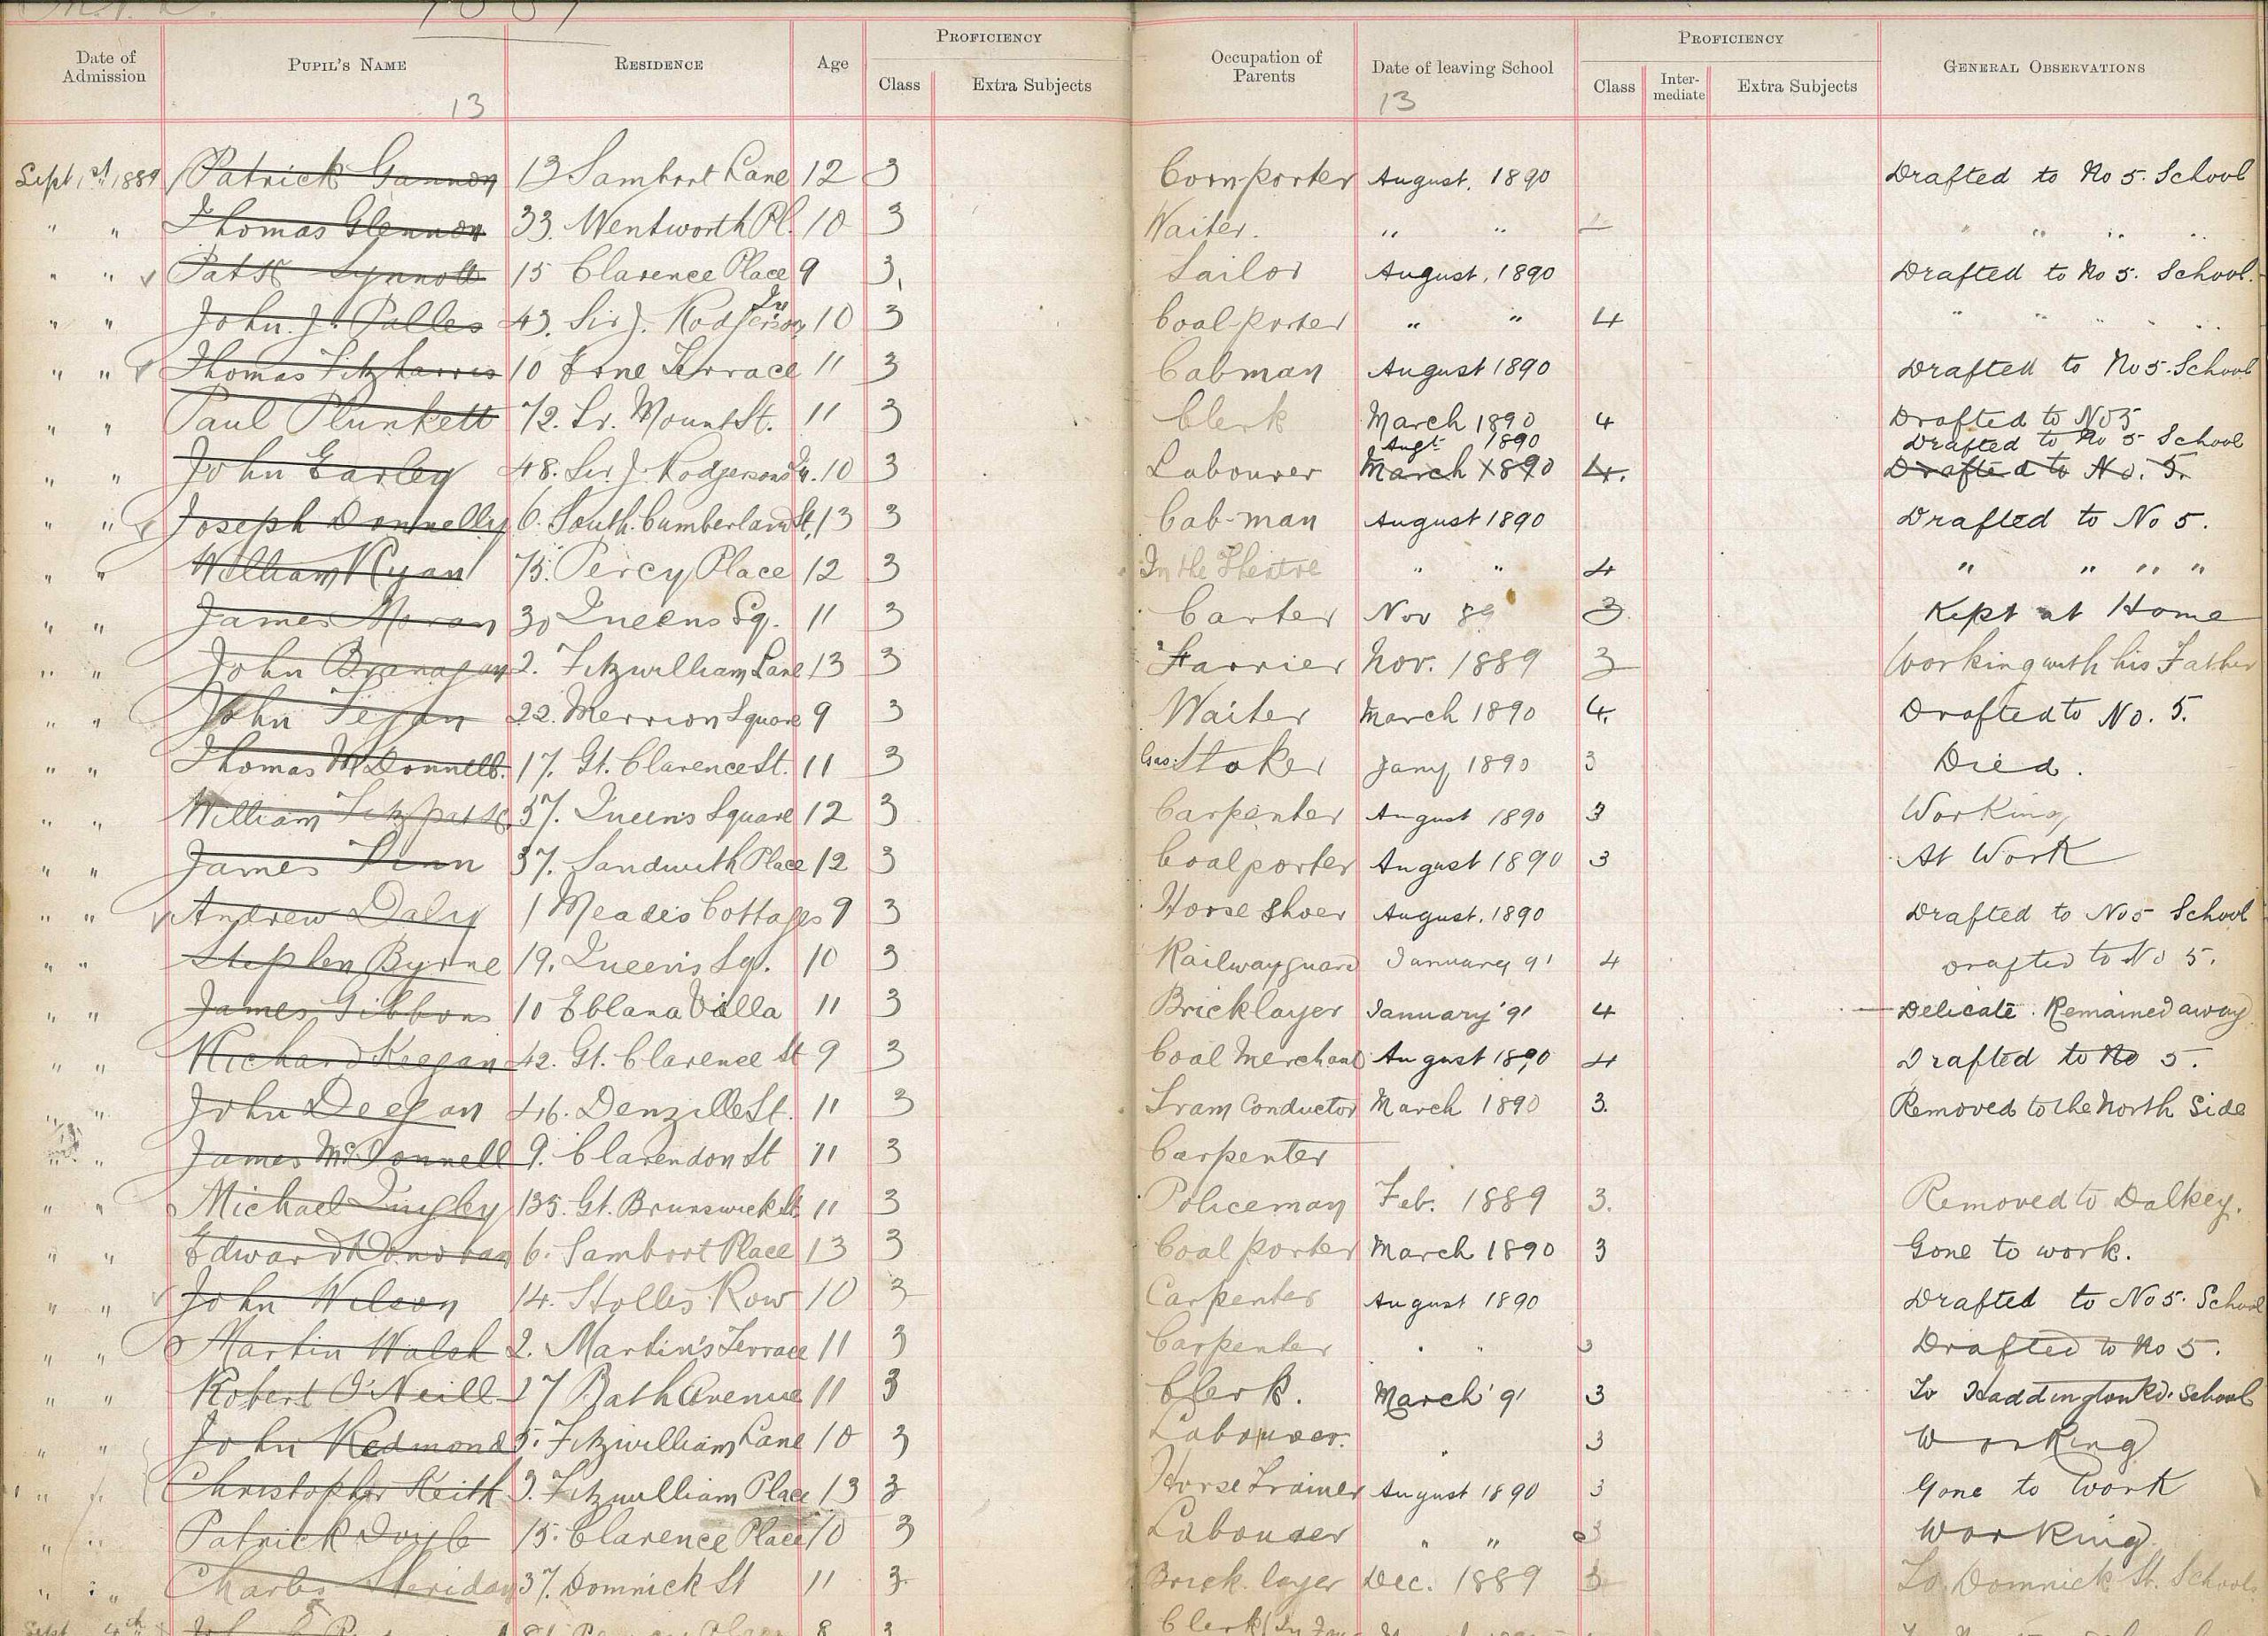 Date of Admission PUPIL'S NAME RESIDENCE Age PROFICIENCY Class Extra Subjects Occupation of Parents Date of leaving School PROFICIENCY Class Inter-mediate Extra Subjects GENERAL OBSERVATIONS
13 13
Sept 1st 1889 Patrick Gannon 13 Sambort Lane 12 3 Cornporter August, 1890 Drafted to No 5. School
" " Thomas Glennon 33. Wentworth Pl. 10 3 Waiter. " " " " " "
" " Patk Synnott 15 Clarence Place 9 3, Sailor August, 1890 Drafted to No 5. School.
" " John. J. Palles 43. Sir J. Rodgerson 10 3 Coal-porter " " 4 " " " " "
" " Thomas Fitzharris 10 Erne Terrace 11 3 Cabman August 1890 Drafted to No 5. School
" " Paul Plunkett 72. Lr. Mount St. 11 3 Clerk March 1890 4 Drafted to No 5
Augt 1890 Drafted to No 5 School
" " John Earley 48. Sir J. Rodgersons Qu. 10 3 Labourer March 1890 4. Drafted to No. 5.
" " Joseph Donnelly 6. South. Cumberland St, 13 3 Cab-man August 1890 Drafted to No 5.
" " William Ryan 75. Percy Place 12 3 In the Theatre " " 4 " " " "
" " James Moran 30 Queens Sq. 11 3 Carter Nov 89 3 Kept at Home
" " John Branagan 2. Fitzwilliam Lane 13 3 Farrier Nov. 1889 3 Working with his Father
" " John Fegan 22. Merrion Square 9 3 Waiter March 1890 4. Drafted to No. 5.
" " Thomas McDonnell. 17. Gt. Clarence St. 11 3 Gas. Stoker Jany 1890 3 Died.
" " William Fitzpatk. 37. Queen's Square 12 3 Carpenter August 1890 3 Working
" " James Finn 37. Sandwith Place 12 3 Coalporter August 1890 3 At Work
" " Andrew Daly 1 Meade's Cottages 9 3 Horse Shoer August, 1890 Drafted to No 5 School
" " Stephen Byrne 19. Queen's Sq. 10 3 Railway guard January 91 4 Drafted to No 5.
" " James Gibbons 10 Eblana Villa 11 3 Bricklayer January '91 4 Delicate. Remained away
" " Richard Keegan 42. Gt. Clarence St 9 3 Coal Merchant August 1890 4 Drafted to No 5.
" " John Deegan 46. Denzille St. 11 3 Tram Conductor March 1890 3. Removed to the North Side
" " James McDonnell 9. Clarendon St 11 3 Carpenter
" " Michael Quigley 135. Gt. Brunswick St. 11 3 Policeman Feb. 1889 3. Removed to Dalkey.
" " Edward Donovan 6. Sambort Place 13 3 Coal porter March 1890 3 Gone to work.
" " John Wilson 14. Stolles Row 10 3 Carpenter August 1890 Drafted to No 5. School
" " Martin Walsh 2. Martin's Terrace 11 3 Carpenter " " 3 Drafted to No 5.
" " Robert O'Neill 17 Bath Avenue 11 3 Clerk. March '91 3 To Haddington Rd. School
" " John Redmond 5. Fitzwilliam Lane 10 3 Labourer. " 3 Working
" " Christopher Keith 3. Fitzwilliam Place 13 3 Horse Trainer August 1890 3 Gone to Work
" " Patrick Doyle 15. Clarence Place 10 3 Labourer " " 3 Working
" " Charles Sheridan 37. Domnick St 11 3 Brick. layer Dec. 1889 3 To Domnick St. Schools
Sept 4th 8 3 Clerk